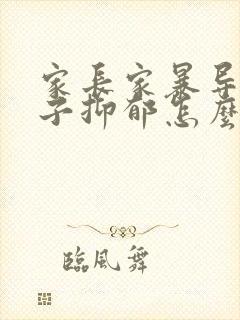 家长家暴导
子抑郁怎麼
臨風舞